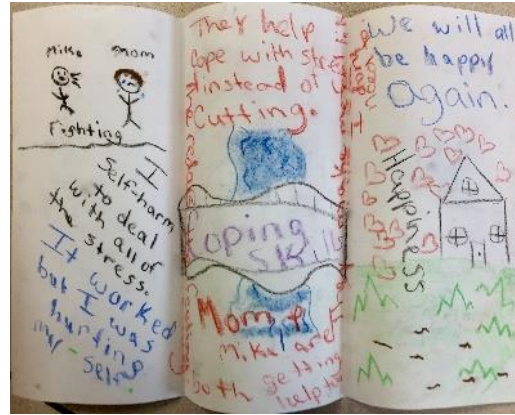 Mike Mom
Fighting
I
self-harm
to deal
with all of
the stress.
It worked
but I was
hurting
my-self.
They help
Cope with stress
instead of
Cutting.
Coping
Skills
Mom &
Mike are
both getting
help
We will all
be happy
Again.
Happiness